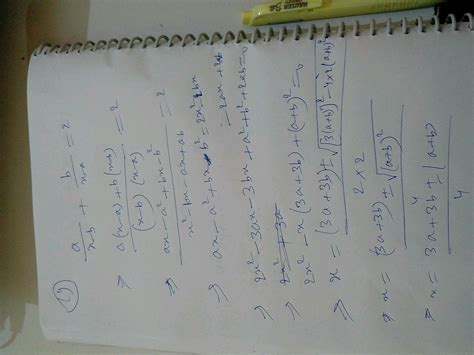 HAUSER
19)
a/(x-b) + b/(x-a) = 2
⇒ (a(x-a)+b(x-b))/((x-b)(x-a)) = 2
⇒ (ax-a²+bx-b²)/(x²-bx-ax+ab) = 2
⇒ ax-a²+bx-b² = 2x²-2bx
-2ax+2ab
⇒ 2x²-3ax-3bx+a²+b²+2ab=0
⇒ 2x²-x(3a+3b)+(a+b)²=0
⇒ x = ((3a+3b)±√{3(a+b)}²-4×2(a+b)²)/(2×2)
⇒ x = ((3a+3b)±√(a+b)²)/4
⇒ x = (3a+3b±(a+b))/4